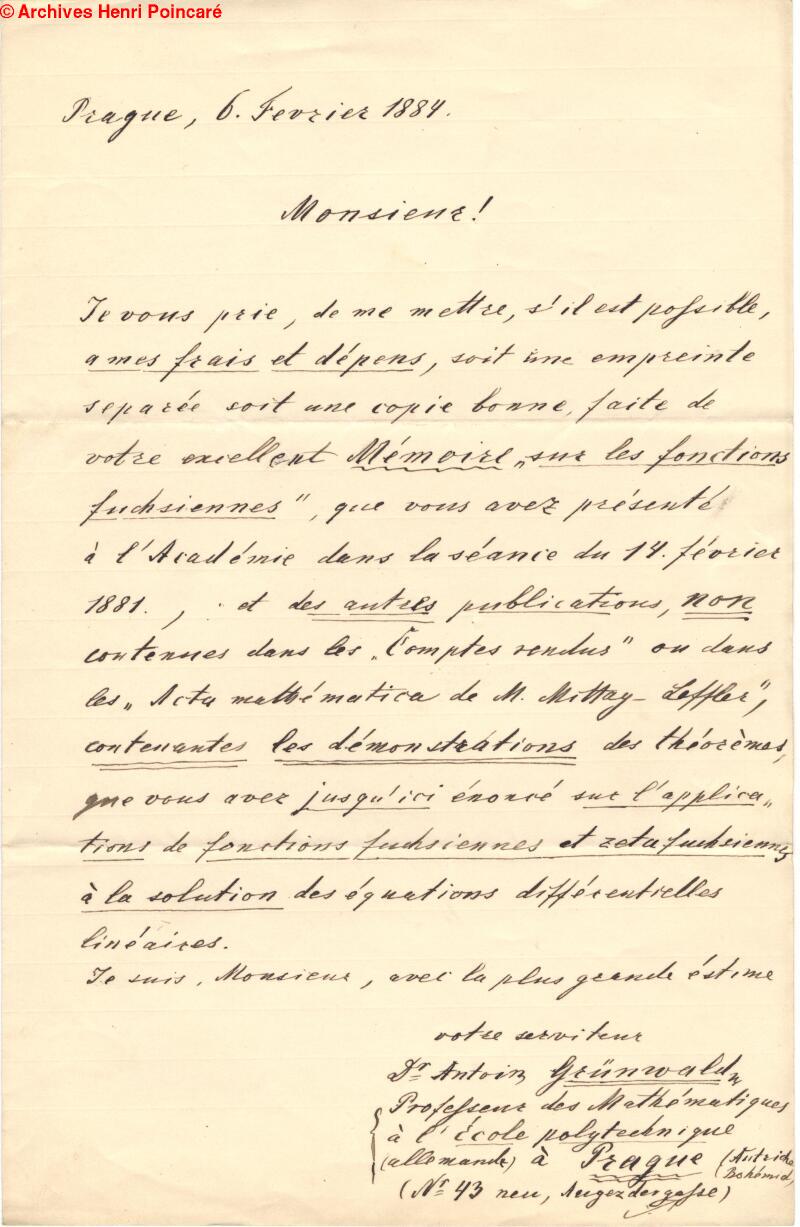 © Archives Henri Poincaré
Prague, 6. Fevrier 1884.
Monsieur!
Je vous prie, de me mettre, s'il est possible,
a mes frais et dépens, soit une empreinte
separée soit une copie bonne, faite de
votre excellent Mémoire „sur les fonctions
fuchsiennes", que vous avez présenté
à l'Académie dans la séance du 14. février
1881., et des autres publications, non
contenues dans les „Comptes rendus" ou dans
les „Acta mathématica de M. Mittag-Leffler",
contenantes les démonstrations des théorèmes,
que vous avez jusqu'ici énoncé sur l'applica„
tions de fonctions fuchsiennes et zetafuchsiennes
à la solution des équations différentielles
linéaires.
Je suis, Monsieur, avec la plus grande éstime
votre serviteur
Dr Antoin Grünwald
Professeur des Mathématiques
à l'école polytechnique
(allemande) à Prague (Autriche
Bohémie)
(Nr 43 neu, Augezdergasse)